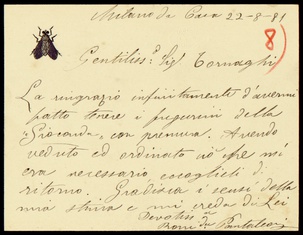 Milano da Casa 22-8-81
8
Gentiliss.º Sigʳ Tornaghi
La ringrazio infinitamente d'avermi
fatto tenere i figurini della
"Gioconda" con premura. Avendo
veduto ed ordinato ciò che mi
era necessario eccoglieli di
ritorno. Gradisca i sensi della
mia stima e mi creda di Lei
Devotiss.
Romilda Pantaleoni